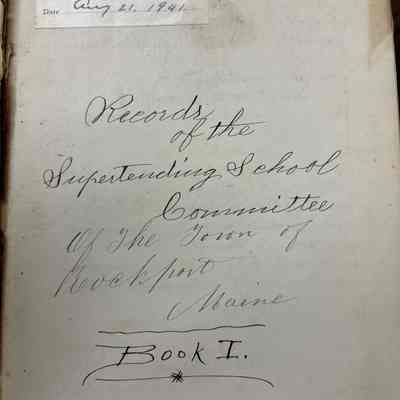 Date Aug 21. 1941.
Records
of the
Supertending School
Committee
Of The Town of
Rockport
Maine
Book I.